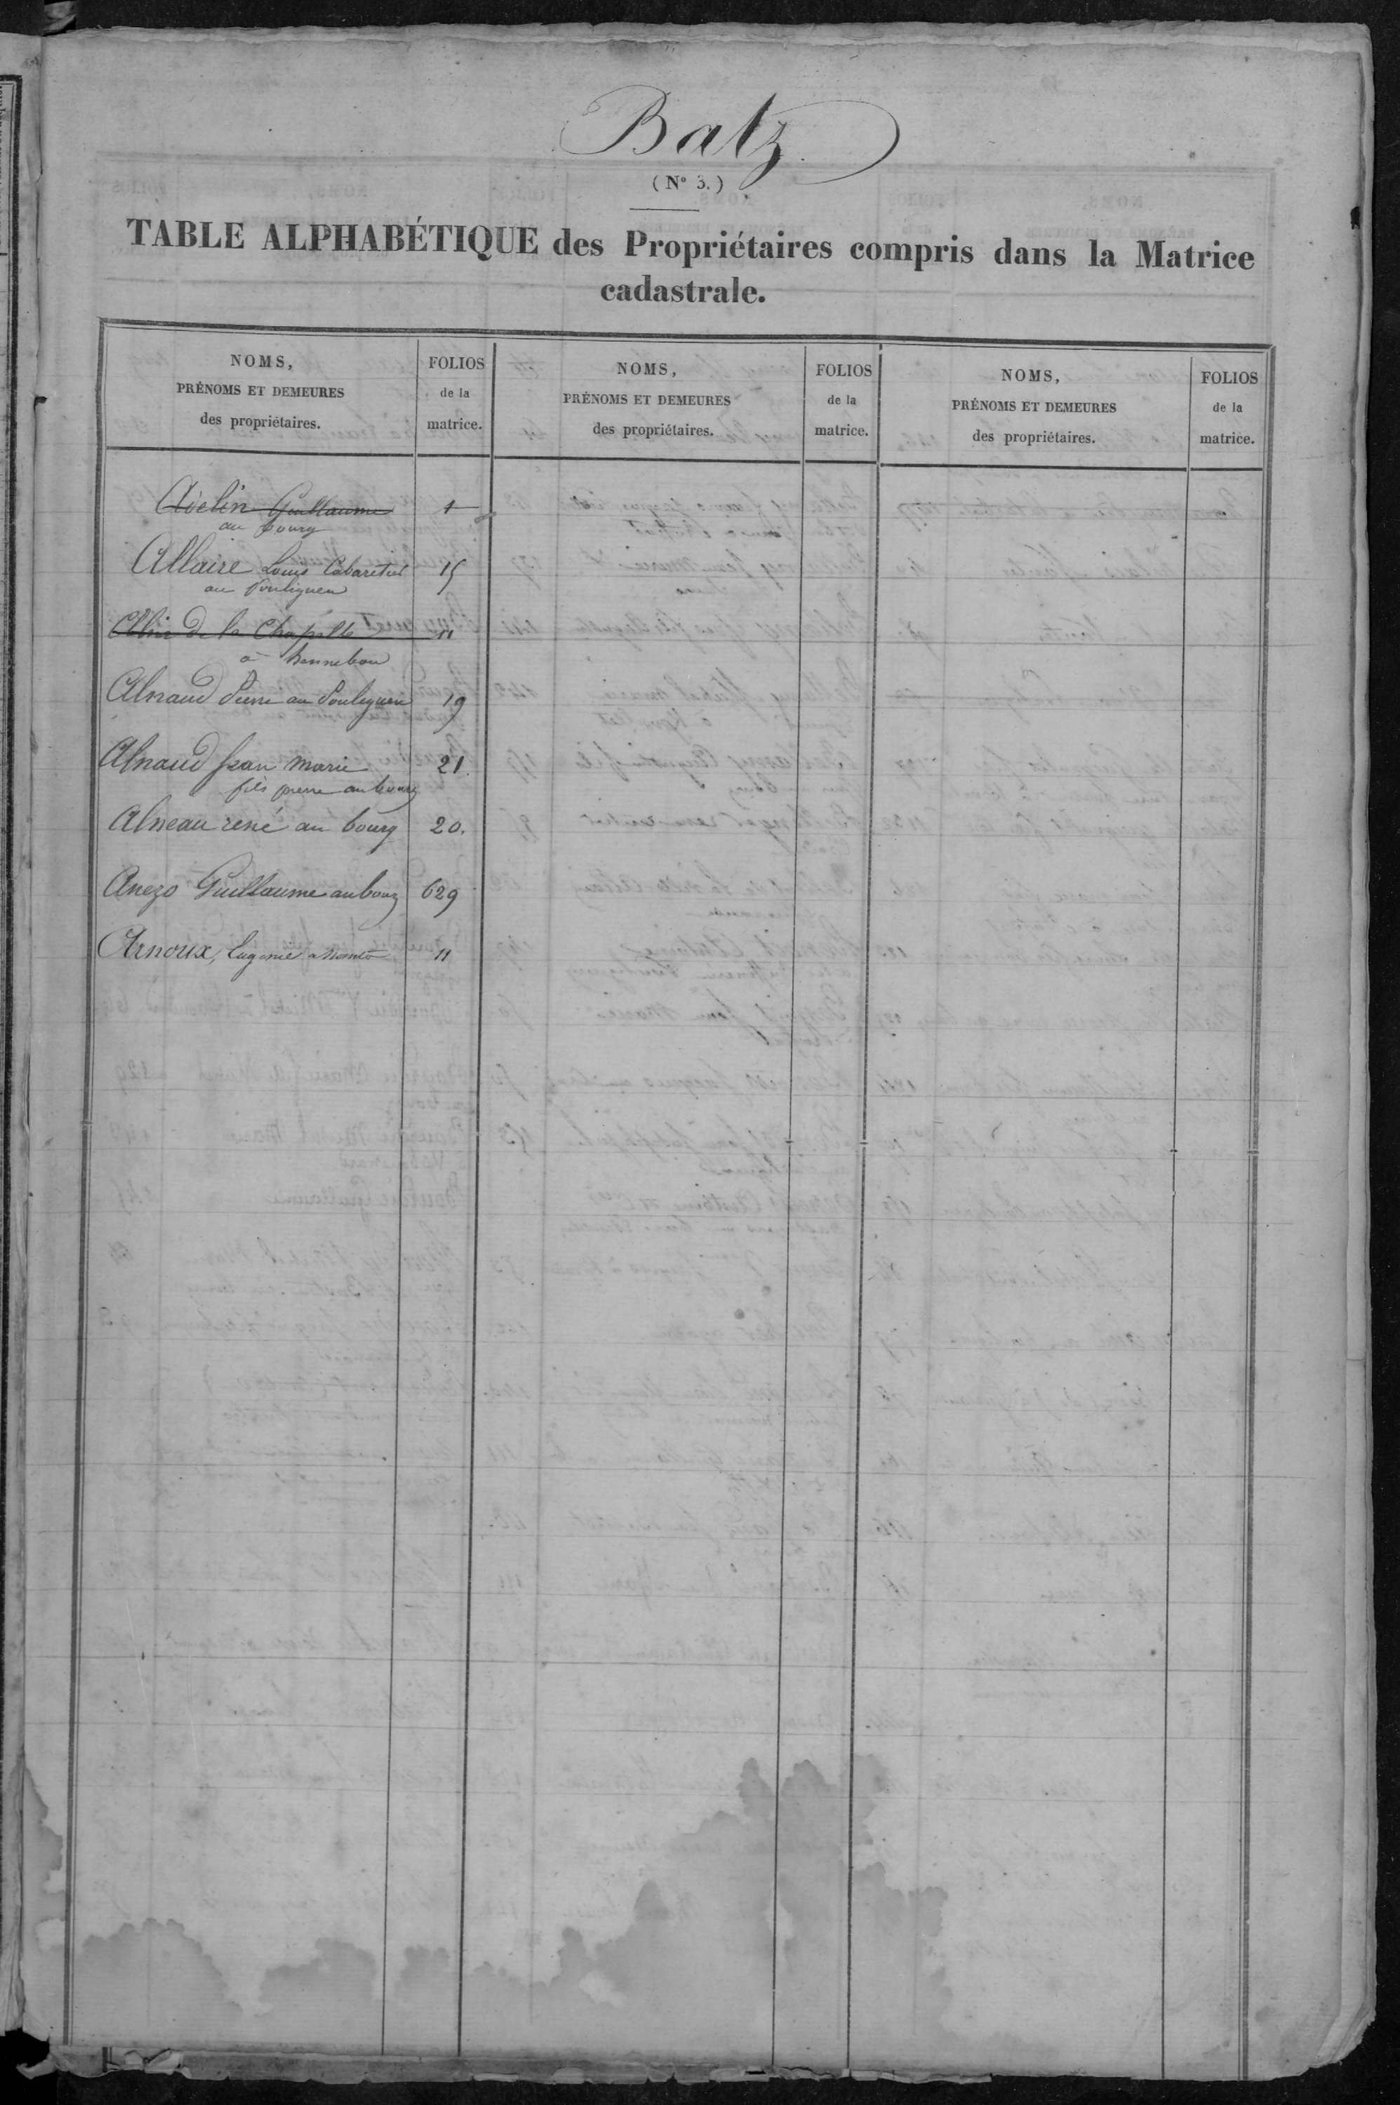 Batz
(N° 3.)
TABLE ALPHABÉTIQUE des Propriétaires compris dans la Matrice
cadastrale.
NOMS, PRÉNOMS ET DEMEURES des propriétaires. FOLIOS de la matrice. NOMS, PRÉNOMS ET DEMEURES des propriétaires. FOLIOS de la matrice. NOMS, PRÉNOMS ET DEMEURES des propriétaires. FOLIOS de la matrice.
Avelin Guillaume 1
au bourg
Allaire Louis Cabaretier 15
au Pouliguen
de la Chapelle 11
à hennebon
Alnaud Pierre au Pouliguen 19
Alnaud jean marie 21.
fils pierre au bourg
Alneau rené au bourg 20.
Anezo Guillaume au bourg 629
Arnoux, Eugenie à 11